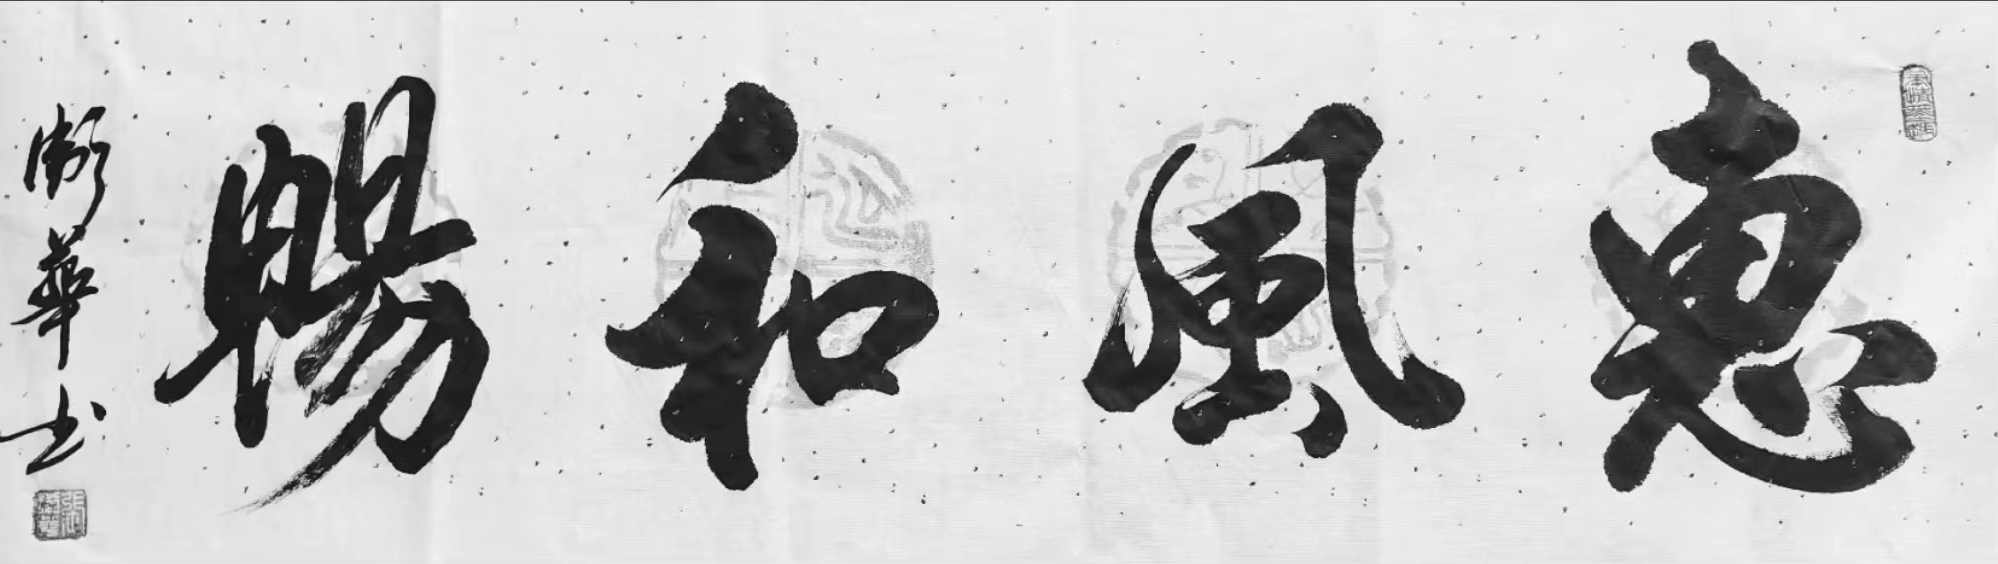 惠風和暢
衛華书